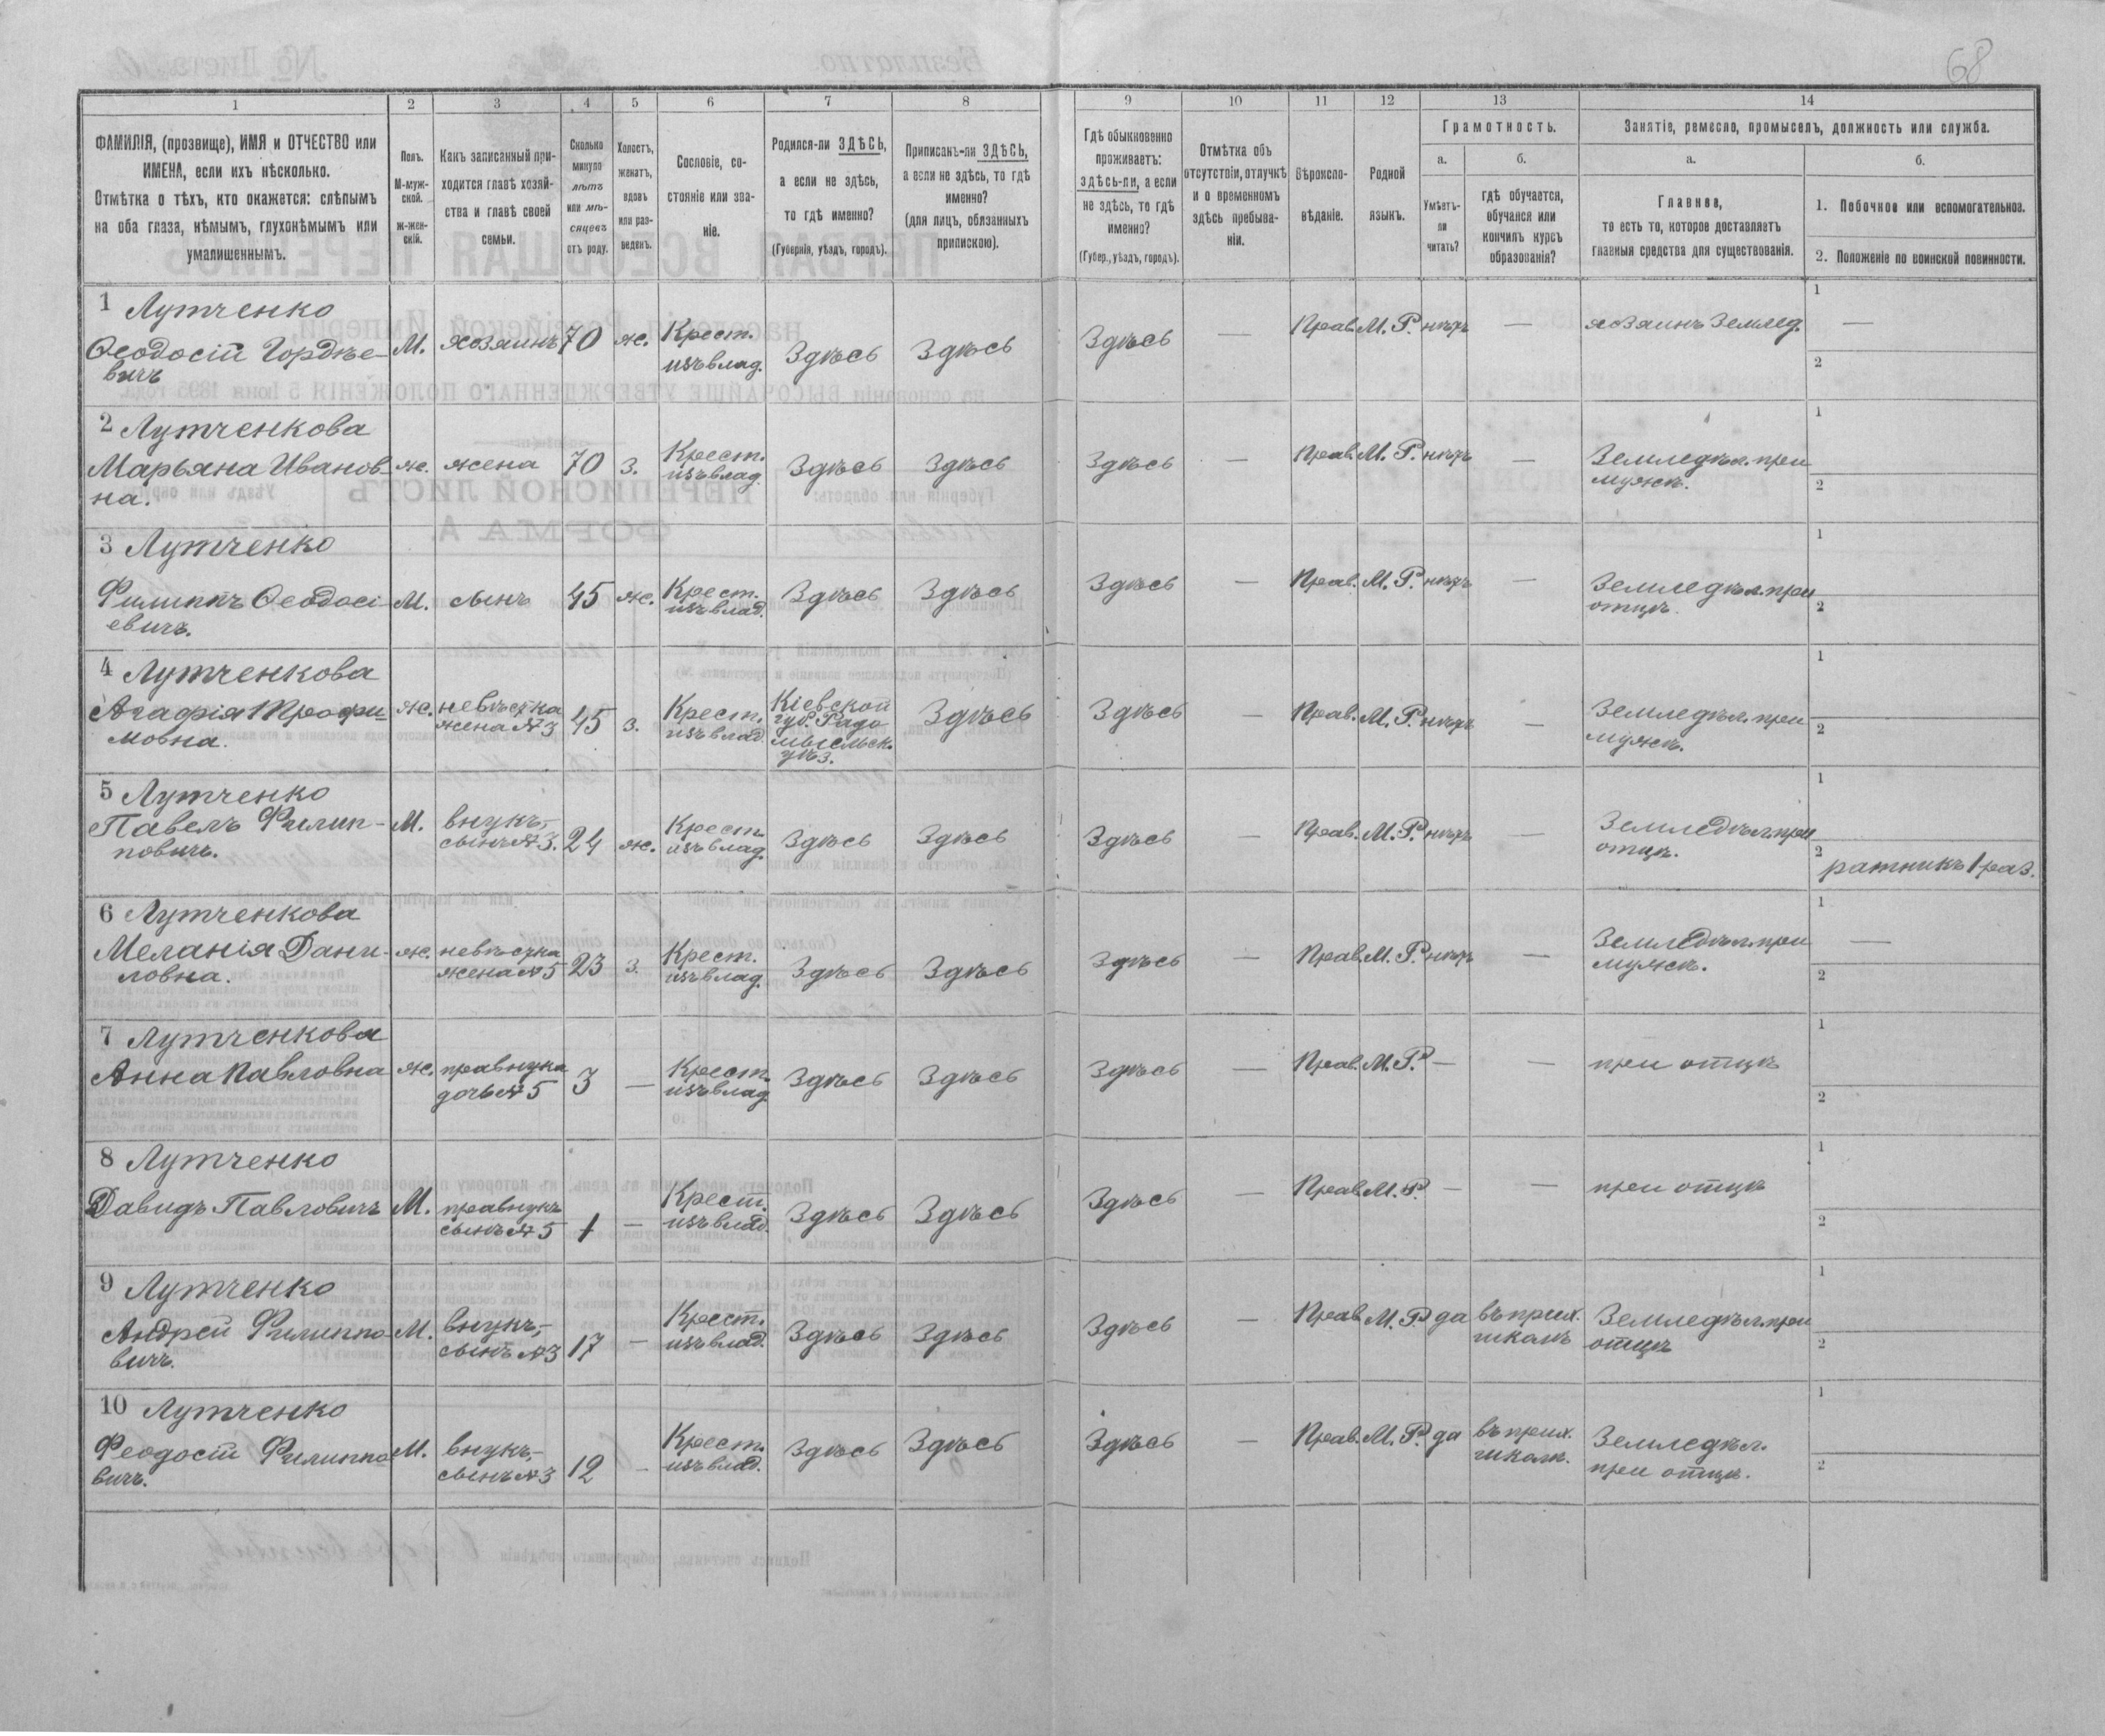 68
1 2 3 4 5 6 7 8 9 10 11 12 13 14
ФАМИЛІЯ, (прозвище), ИМЯ и ОТЧЕСТВО или
ИМЕНА, если ихъ нѣсколько.
Отмѣтка о тѣхъ, кто окажется: слѣпымъ
на оба глаза, нѣмымъ, глухонѣмымъ или
умалишеннымъ.
Полъ.
М-муж-
ской.
ж-жен-
скій.
Какъ записанный при-
ходится главѣ хозяй-
ства и главѣ своей
семьи.
Сколько
минуло
лѣтъ
или мѣ-
сяцевъ
отъ роду.
Холостъ,
женатъ,
вдовъ
или раз-
веденъ.
Сословіе, со-
стояніе или зва-
ніе.
Родился-ли ЗДѢСЬ,
а если не здѣсь,
то гдѣ именно?
(Губернія, уѣздъ, городъ).
Приписанъ-ли ЗДѢСЬ,
а если не здѣсь, то гдѣ
именно?
(для лицъ, обязанныхъ
припискою).
Гдѣ обыкновенно
проживаетъ:
здѣсь-ли, а если
не здѣсь, то гдѣ
именно?
(Губер., уѣздъ, городъ).
Отмѣтка объ
отсутствіи, отлучкѣ
и о временномъ
здѣсь пребыва-
ніи.
Вѣроиспо-
вѣданіе.
Родной
языкъ.
Грамотность.
а.
Умѣетъ-
ли
читать?
б.
гдѣ обучается,
обучался или
кончилъ курсъ
образованія?
Занятіе, ремесло, промыселъ, должность или служба.
а.
Главное,
то есть то, которое доставляетъ
главныя средства для существованія.
б.
1. Побочное или вспомогательное.
2. Положеніе по воинской повинности.
1 Лутченко
Ѳеодосій Гордѣе-
вичъ
М. хозяинъ 70 ж. Крест.
изъ влад.
Здѣсь Здѣсь Здѣсь — Прав. М. Р. нѣтъ — хозяинъ Землед.
1 —
2
2 Лутченкова
Марьяна Иванов-
на.
ж. жена 70 з. Крест.
изъ влад.
Здѣсь Здѣсь Здѣсь — Прав. М. Р. нѣтъ — Земледѣл. при
мужѣ.
1
2
3 Лутченко
Филиппъ Ѳеодосі
евичъ.
М. сынъ 45 ж. Крест.
изъ влад.
Здѣсь Здѣсь Здѣсь — Прав. М. Р. нѣтъ — Земледѣл. при
отцѣ.
1
2
4 Лутченкова
Агафія Трофи-
мовна.
ж. невѣстка
жена №3
45 з. Крест.
изъ влад.
Кіевской
губ. Радо
мысльск.
уѣз.
Здѣсь Здѣсь — Прав. М. Р. нѣтъ — Земледѣл. при
мужѣ.
1
2
5 Лутченко
Павелъ Филип-
повичъ.
М. внукъ,-
сынъ №3.
24 ж. Крест.
изъ влад.
Здѣсь Здѣсь Здѣсь — Прав. М. Р. нѣтъ — Земледѣл. при
отцѣ.
1
2
ратникъ 1 раз.
6 Лутченкова
Меланія Дани-
ловна.
ж. невѣстка
жена №5
23 з. Крест.
изъ влад.
Здѣсь Здѣсь Здѣсь — Прав. М. Р. нѣтъ — Земледѣл. при
мужѣ.
1 —
2
7 Лутченкова
Анна Павловна
ж. правнука
дочь №5
3 — Крест.
изъ влад.
Здѣсь Здѣсь Здѣсь — Прав. М. Р. — — при отцѣ
1
2
8 Лутченко
Давидъ Павловичъ
М. правнукъ
сынъ №5
1 — Крест.
изъ влад.
Здѣсь Здѣсь Здѣсь — Прав. М. Р. — — при отцѣ
1
2
9 Лутченко
Андрей Филиппо
вичъ.
М. внукъ,-
сынъ №3
17 — Крест.
изъ влад.
Здѣсь Здѣсь Здѣсь — Прав. М. Р. да въ прих.
школѣ
Земледѣл. при
отцѣ
1
2
10 Лутченко
Феодосій Филиппо
вичъ.
М. внукъ,-
сынъ №3
12 — Крест.
изъ влад.
Здѣсь Здѣсь Здѣсь — Прав. М. Р. да въ прих.
школѣ.
Земледѣл.
при отцѣ.
1
2